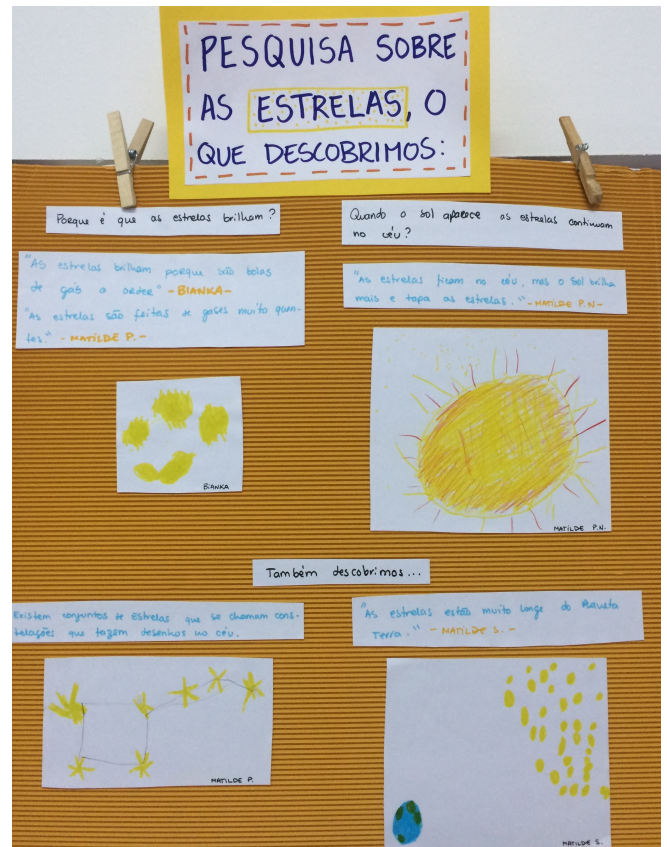 PESQUISA SOBRE
AS ESTRELAS, O
QUE DESCOBRIMOS:
Porque é que as estrelas brilham?
"AS estrelas brilham porque são bolas
de gás a arder" -BIANKA-
"As estrelas são feitas de gases muito quen-
tes." -MATILDE P.-
BIANKA
Quando o sol aparece as estrelas continuam
no céu?
"As estrelas ficam no céu, mas o Sol brilha
mais e tapa as estrelas." -MATILDE P.N-
MATILDE P.N.
Também descobrimos...
Existem conjuntos de estrelas que se chamam cons-
telações que fazem desenhos no céu.
MATILDE P.
"As estrelas estão muito longe do Planeta
Terra." - MATILDE S. -
MATILDE S.